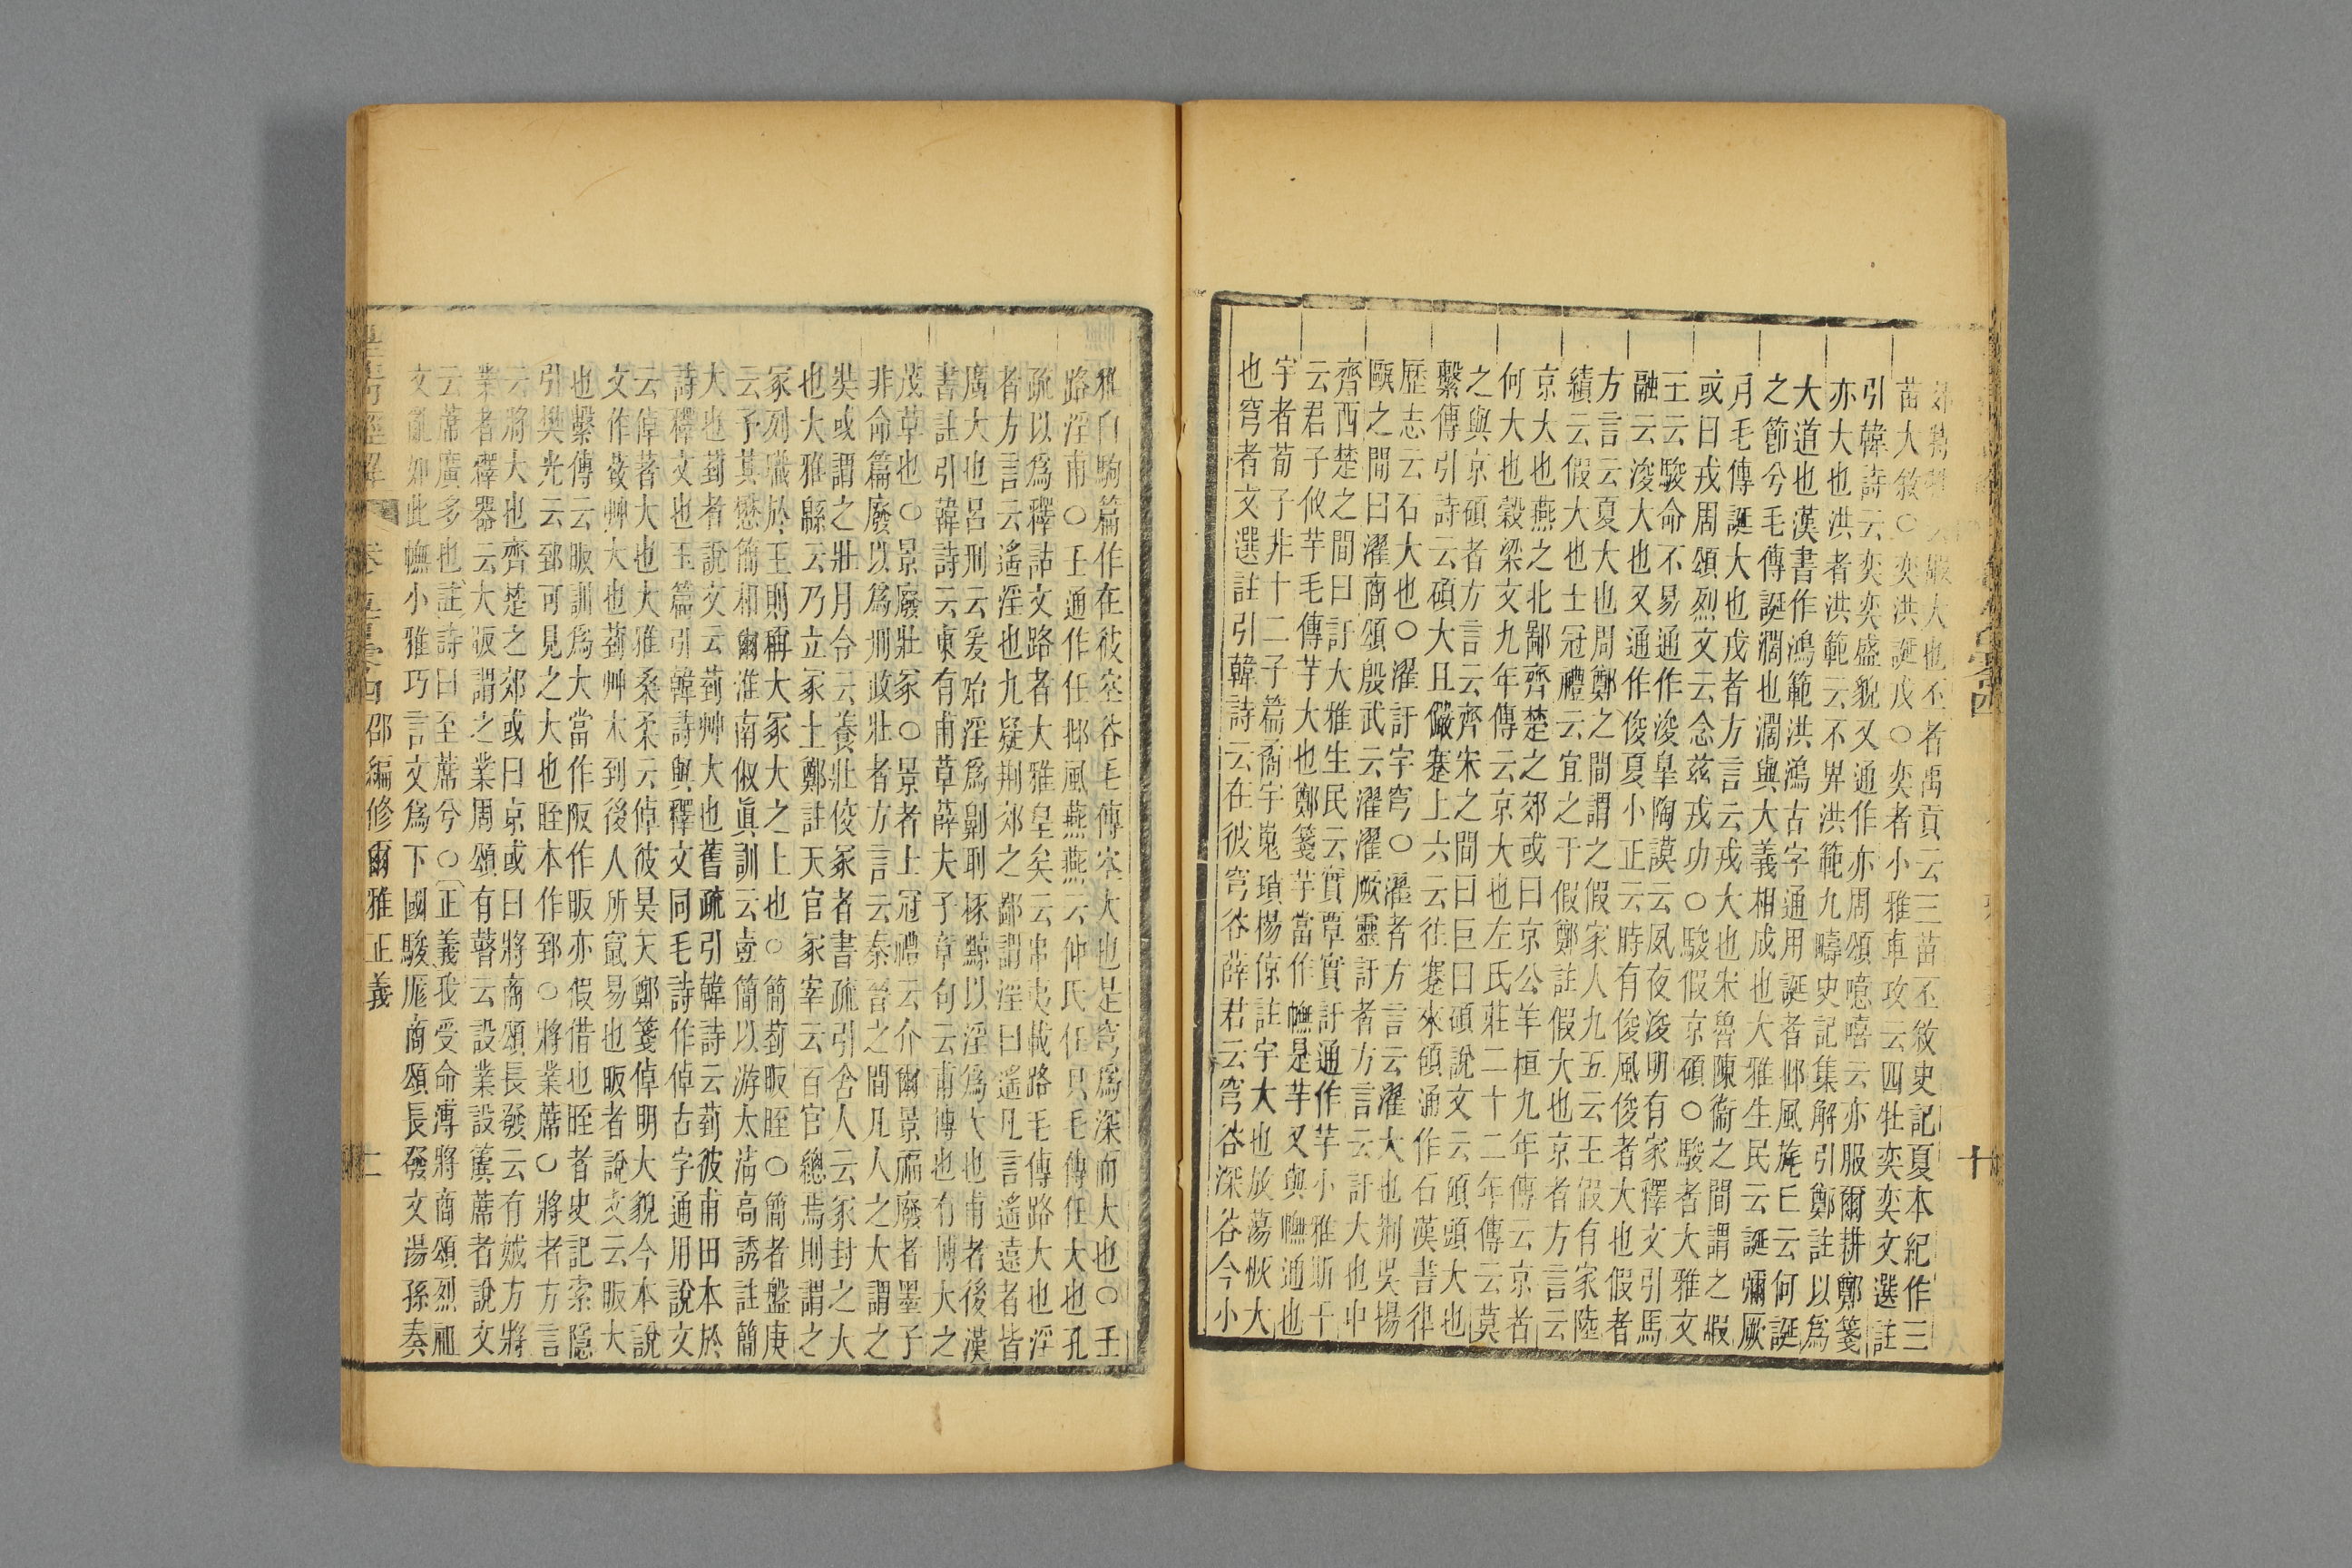 大也丕者禹貢云三苗丕敘史記夏本紀作三
苗大敘○奕洪誕戎○奕者小雅車攻云四牡奕奕文選註
引韓詩云奕奕盛貌又通作亦周頌噫嘻云亦服爾耕鄭箋
亦大也洪者洪範云不畀洪範九疇史記集解引鄭註以爲
大道也漢書作鴻範洪鴻古字通用誕者邶風旄丘云何誕
之節兮毛傳誕濶也濶與大義相成也大雅生民云誕彌厥
月毛傳誕大也戎者方言云戎大也宋魯陳衞之間謂之嘏
或曰戎周頌烈文云念茲戎功○駿假京碩○駿者大雅文
王云駿命不易通作浚皐陶謨云夙夜浚明有家釋文引馬
融云浚大也又通作俊夏小正云時有俊風俊者大也假者
方言云夏大也周鄭之間謂之假家人九五云王假有家陸
績云假大也士冠禮云宜之于假鄭註假大也京者方言云
京大也燕之北鄙齊楚之郊或曰京公羊桓九年傳云京者
何大也穀梁文九年傳云京大也左氏莊二十二年傳云莫
之與京碩者方言云齊宋之間曰巨曰碩說文云碩頭大也
繫傳引詩云碩大且儼蹇上六云往蹇來碩通作石漢書律
歷志云石大也○濯訏宇穹○濯者方言云濯大也荆吳揚
甌之間曰濯商頌殷武云濯濯厥靈訏者方言云訏大也中
齊西楚之間曰訏大雅生民云實覃實訏通作芋小雅斯干
云君子攸芋毛傳芋大也鄭箋芋當作幠是芋又與幠通也
宇者荀子非十二子篇矞宇嵬瑣楊倞註宇大也放蕩恢大
也穹者文選註引韓詩云在彼穹谷薛君云穹谷深谷今小
雅白駒篇作在彼空谷毛傳空大也是穹爲深而大也○壬
路淫甫○壬通作任邶風燕燕云仲氏任只毛傳任大也孔
疏以爲釋詁文路者大雅皇矣云串夷載路毛傳路大也淫
者方言云遙淫也九疑荆郊之鄙謂淫曰遙凡言遙遠者皆
廣大也呂刑云爰始淫爲劓刵椓黥以淫爲大也甫者後漢
書註引韓詩云東有甫草薛夫子章句云甫博也有博大之
茂草也○景廢壯冢○景者士冠禮云介爾景福廢者墨子
非命篇廢以爲刑政壯者方言云秦晉之間凡人之大謂之
奘或謂之壯月令云養壯佼冢者書疏引舍人云冢封之大
也大雅緜云乃立冢土鄭註天官冢宰云百官總焉則謂之
冢列職於王則稱大冢大之上也○簡菿昄晊○簡者盤庚
云予其懋簡相爾淮南俶眞訓云壹簡以游太淸高誘註簡
大也菿者說文云菿艸大也舊疏引韓詩云菿彼甫田本於
詩釋文也玉篇引韓詩與釋文同毛詩作倬古字通用說文
云倬著大也大雅桑柔云倬彼昊天鄭箋倬明大貌今本說
文作菿艸大也菿艸木到後人所竄易也昄者說文云昄大
也繫傳云昄訓爲大當作阪作昄亦假借也晊者史記索隱
引樊光云郅可見之大也晊本作郅○將業蓆○將者方言
云將大也齊楚之郊或曰京或曰將商頌長發云有娀方將
業者釋器云大版謂之業周頌有瞽云設業設簴蓆者說文
云蓆廣多也註詩曰至蓆兮○正義我受命溥將商頌烈祖
文亂如此幠小雅巧言文爲下國駿厖商頌長發文湯孫奏
皇淸經解 邵編修爾雅正義